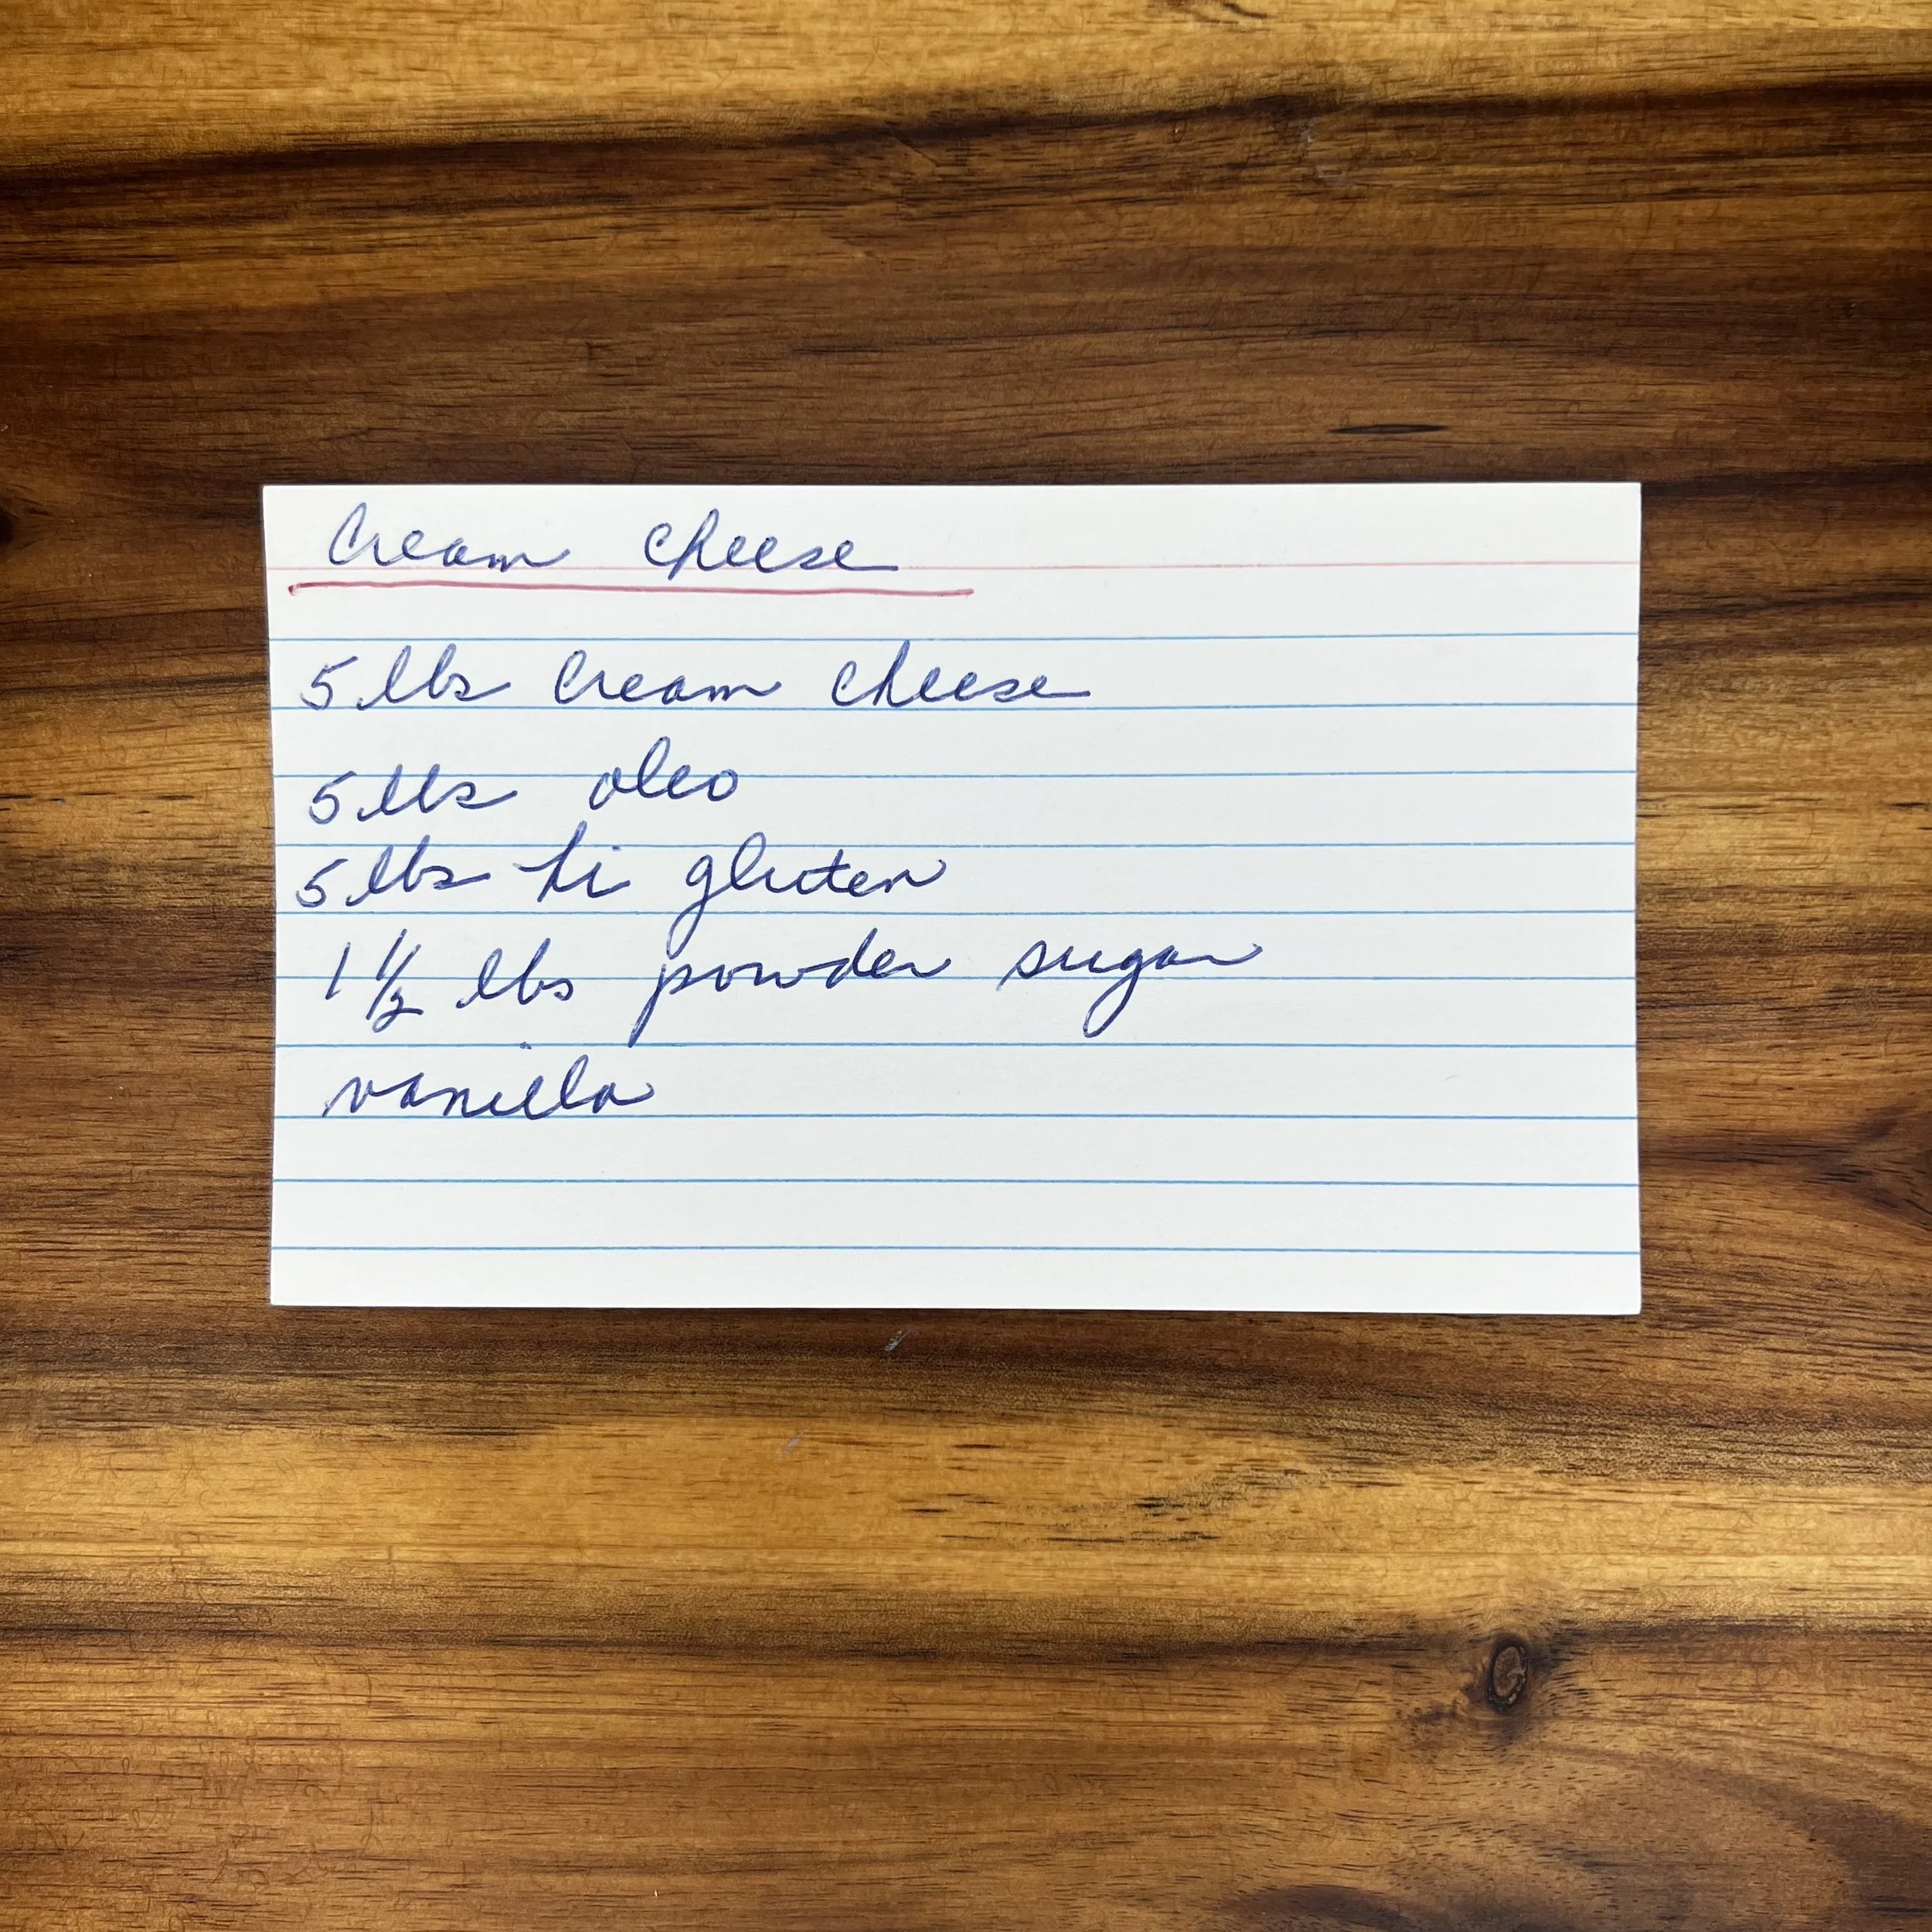 Cream cheese
5 lbs Cream cheese
5 lbs oleo
5 lbs hi gluten
1 1/2 lbs powder sugar
vanilla